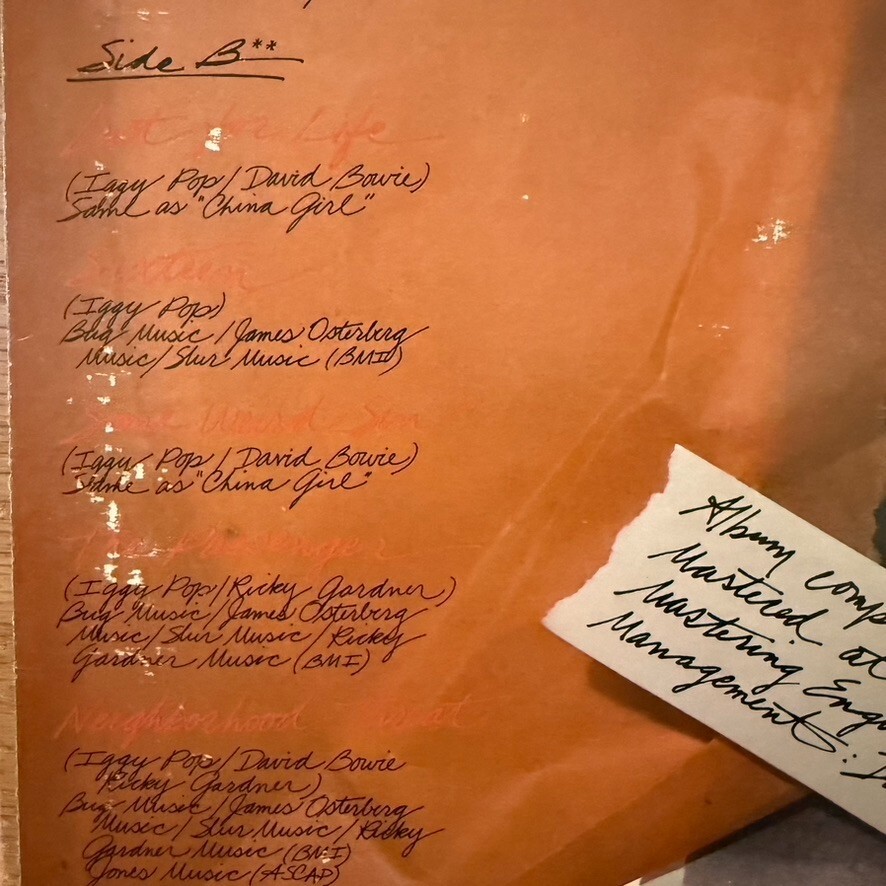 Side B**
Lust for Life
(Iggy Pop/David Bowie)
Same as "China Girl"
Sixteen
(Iggy Pop)
Bug Music/James Osterberg
Music/Slur Music (BMI)
Some Weird Sin
(Iggy Pop/David Bowie)
Same as "China Girl"
The Passenger
(Iggy Pop/Ricky Gardner)
Bug Music/James Osterberg
Music/Slur Music/Ricky
Gardner Music (BMI)
Neighborhood Threat
(Iggy Pop/David Bowie
Ricky Gardner)
Bug Music/James Osterberg
Music/Slur Music/Ricky
Gardner Music (BMI)
Jones Music (ASCAP)
Album comp
Mastered at
Mastering Engi
Management: